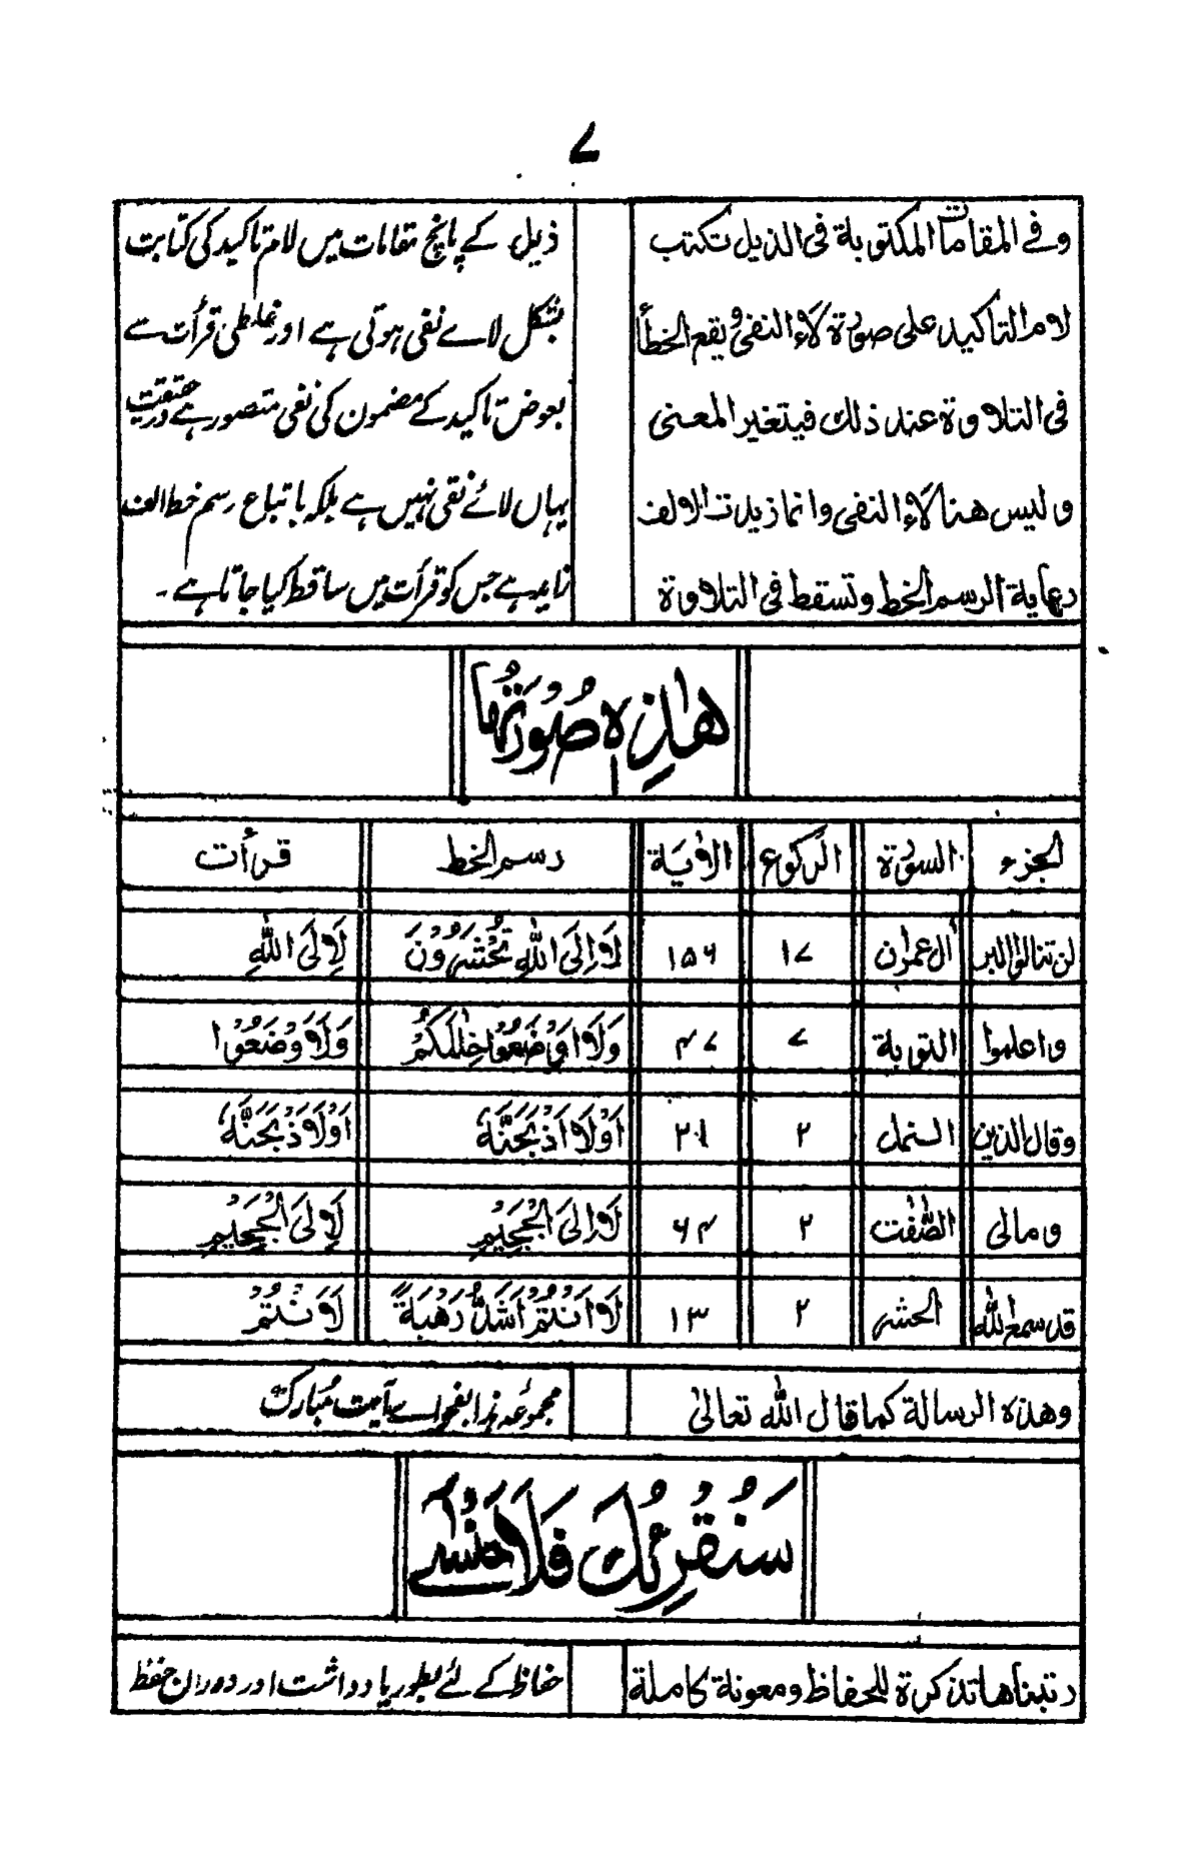 ۷
وفي المقامات المكتوبة في الذيل تكتب
لام التاكيد على صورة لاء النفي ويقع الخطأ
في التلاوة عند ذلك فيتغير المعنى
وليس هنا لاء النفي وانما زيدت الالف
رعاية الرسم الخط وتسقط في التلاوة
ذیل کے پانچ مقامات میں لام تاکید کی کتابت
بشکل لائے نفی ہوتی ہے اور غلطی قرأت سے
بعوض تاکید کے مضمون کی نفی متصور ہے در حقیقت
یہاں لائے نفی نہیں ہے بلکہ باتباع رسم خط الف
زاید ہے جس کو قرأت میں ساقط کیا جاتا ہے۔
هٰذِهٖ صُوْرَتُهَا
الجزء السورة الركوع الآية رسم الخط قرأت
لن تنالوا البر اٰل عمرٰن ۱۷ ۱۵۶ لَاۡ اِلَى اللّٰهِ تُحْشَرُوْنَ لَاِلَى اللّٰهِ
واعلموا التوبة ۷ ۴۷ وَلَا۟اَوْضَعُوْا خِلٰلَكُمْ وَلَاَوْضَعُوْا
وقال الذين النمل ۲ ۲۱ اَوْلَا۟اَذْبَحَنَّهٗ اَوْلَاَذْبَحَنَّهٗ
ومالى الصّٰفّٰت ۲ ۶۴ لَا۟اِلَى الْجَحِيْمِ لَاِلَى الْجَحِيْمِ
قد سمع الله الحشر ۲ ۱۳ لَا۟اَنْتُمْ اَشَدُّ رَهْبَةً لَاَنْتُمْ
وهذه الرسالة كما قال الله تعالىٰ
مجموعہ ہذا بفحوائے آیت مبارک
سَنُقْرِئُكَ فَلَا تَنْسٰى
رتبناها تذكرة للحفاظ ومعونة كاملة
حفاظ کے لئے بطور یادداشت اور دوران حفظ